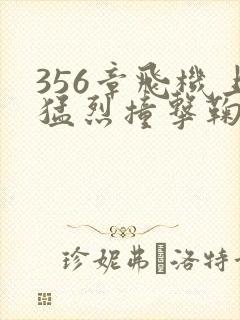 356章飛機上
猛烈撞擊鞠
珍妮弗·洛特